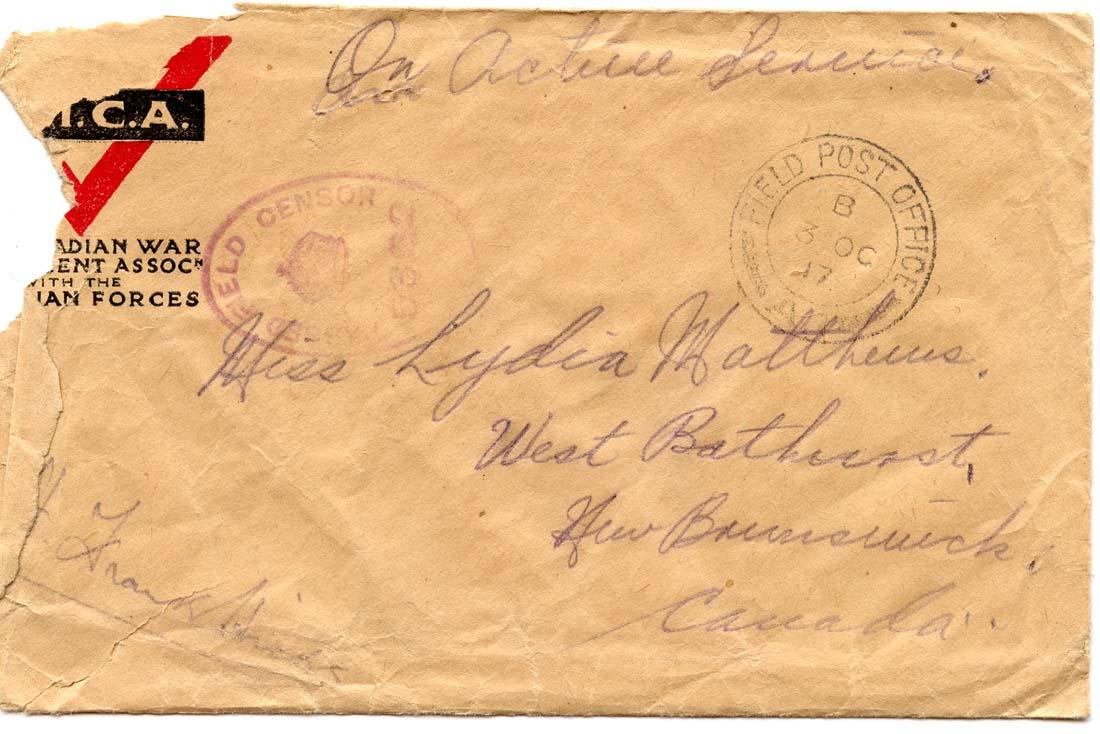 On Active Service.
.C.A.
ADIAN WAR
ENT ASSOCN
WITH THE
IAN FORCES
FIELD CENSOR
FIELD POST OFFICE
B
3 OC
17
Miss Lydia Matthews.
West Bathurst,
New Brunswick,
Canada.
Frank